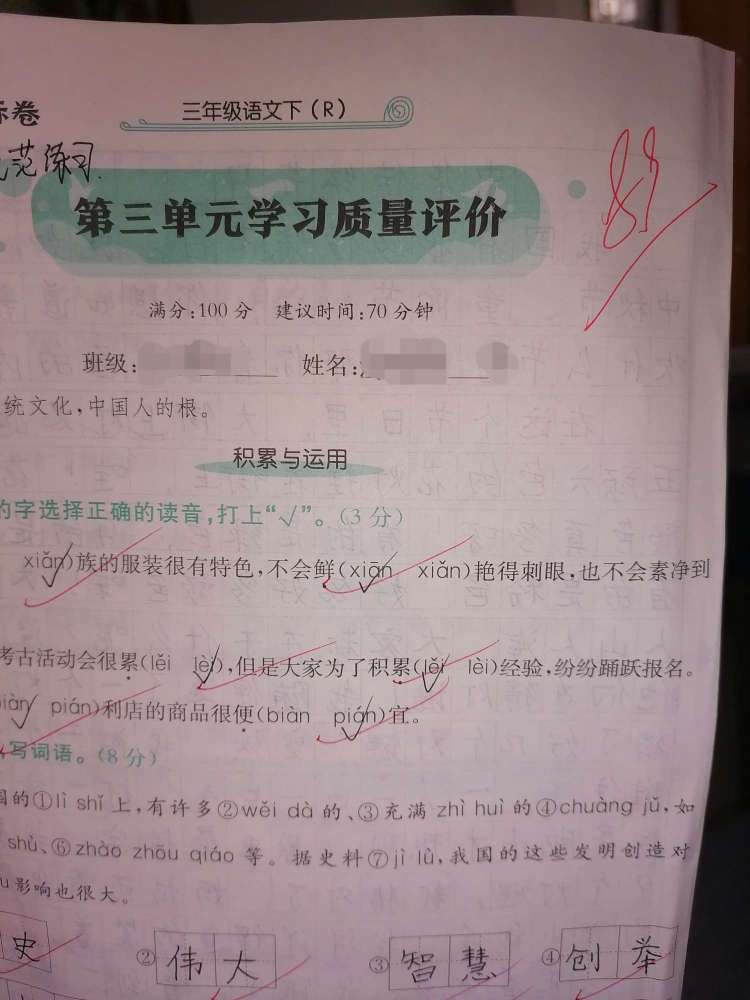 标卷
三年级语文下(R)
范练习
83
第三单元学习质量评价
满分:100分 建议时间:70分钟
班级: 姓名:
统文化,中国人的根。
积累与运用
的字选择正确的读音,打上“√”。(3分)
xiǎn)族的服装很有特色,不会鲜(xiān xiǎn)艳得刺眼,也不会素净到
考古活动会很累(lěi lèi),但是大家为了积累(lěi lèi)经验,纷纷踊跃报名。
biàn pián)利店的商品很便(biàn pián)宜。
写词语。(8分)
国的①lì shǐ上,有许多②wěi dà的、③充满zhì huì的④chuàng jǔ,如
shù、⑥zhào zhōu qiáo等。据史料⑦jì lù,我国的这些发明创造对
影响也很大。
史 ②伟大 ③智慧 ④创举